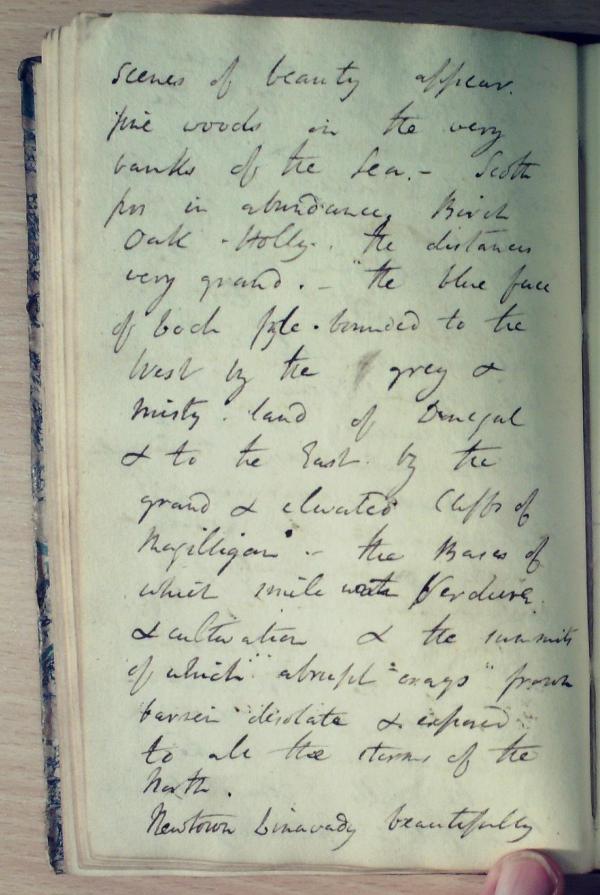 scenes of beauty appear.
pine woods on the very
banks of the Sea. - Scotch
firs in abundance, Birch
Oak - Holly. The distances
very grand. - the blue face
of Loch Foyle. bounded to the
West by the grey &
misty land of Donegal
& to the East by the
grand & elevated Cliffs of
Magilligan - the Bases of
which smile with Verdure
& cultivation & the summits
of which abrupt crags frown
barren desolate & exposed
to all the storms of the
North.
Newtown Limavady beautifully